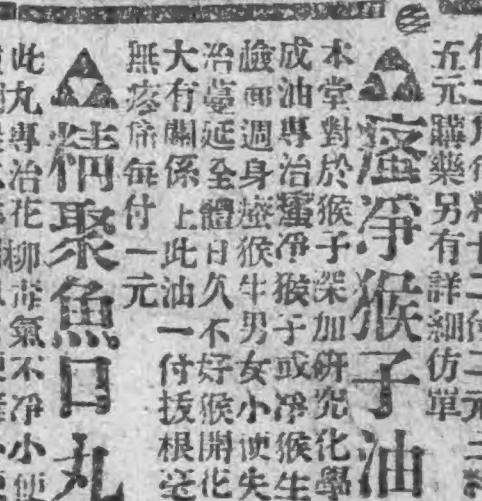 五元購藥另有詳細仿單
瘙淨猴子油
本堂對於猴子深加研究化學
成油專治瘙淨猴子或淨猴生
臉面週身瘙猴牛男女小便失
治蔓延全體日久不好猴開花
大有關係上此油一付拔根毫
無疼痛每付一元
精聚魚口丸
此丸專治花柳毒氣不淨小便